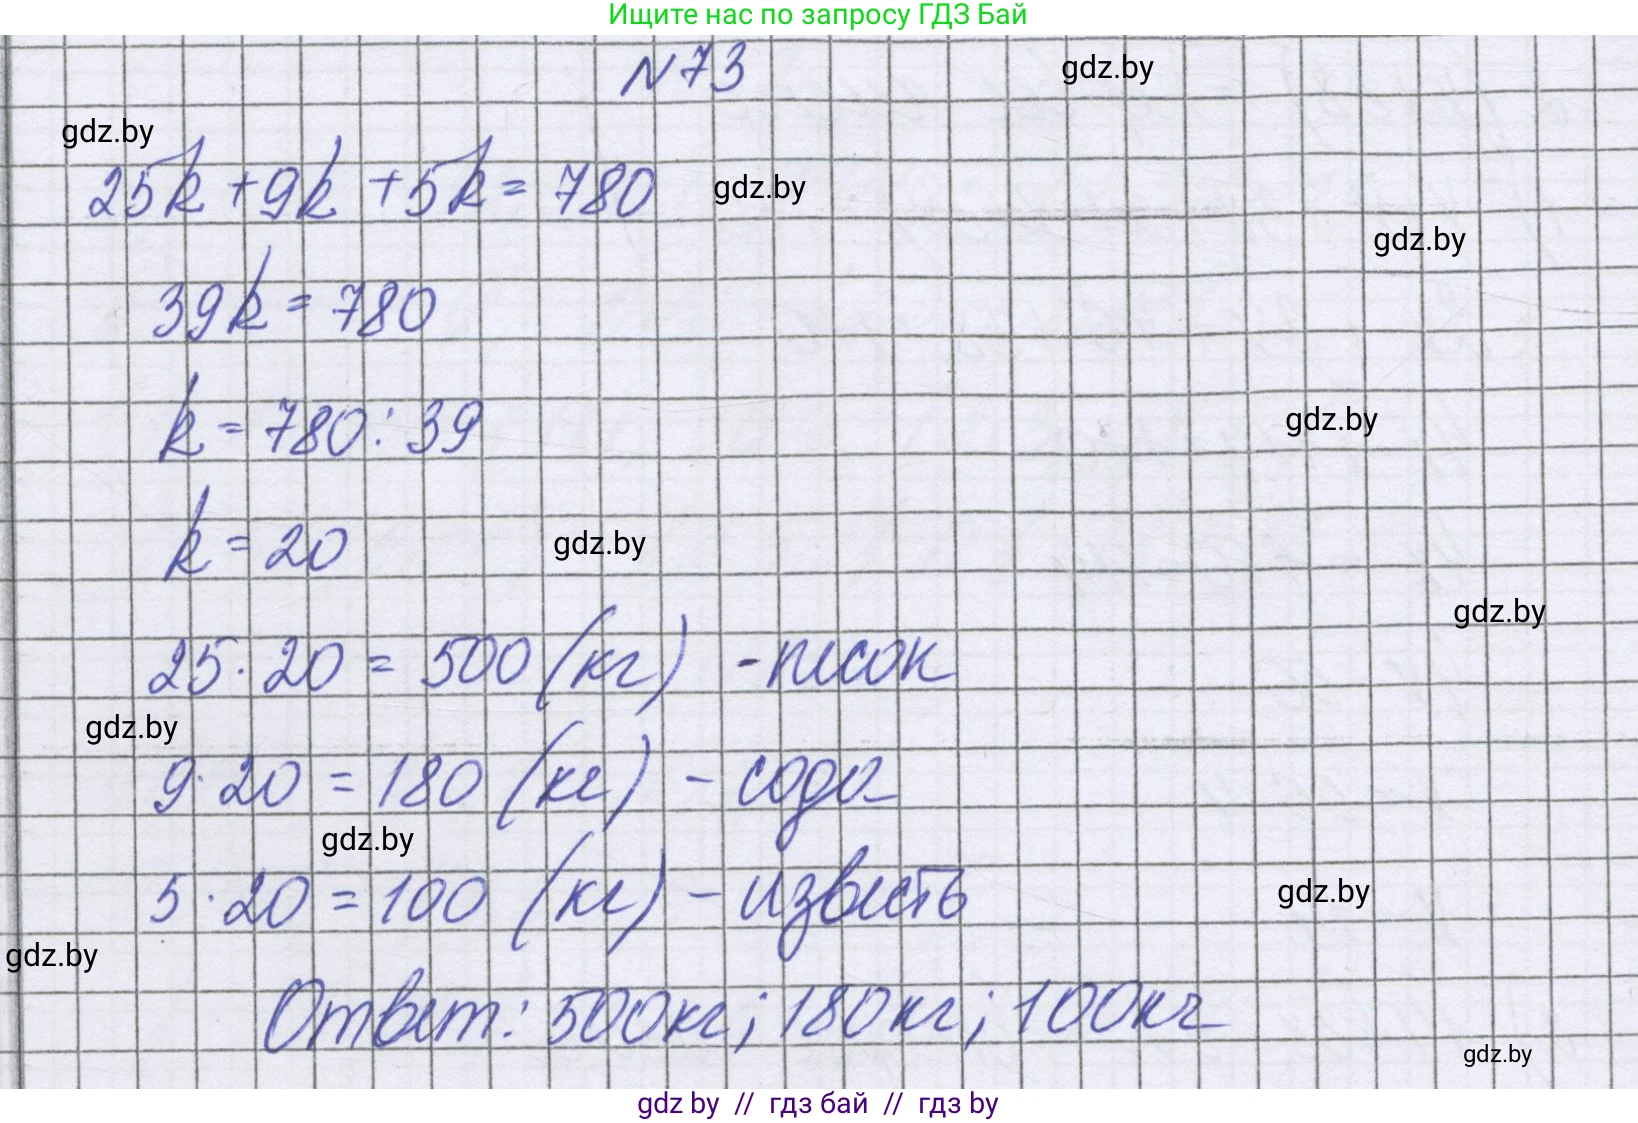 Ищите нас по запросу ГДЗ Бай
N73
gdz.by
gdz.by
25k + 9k + 5k = 780
gdz.by
gdz.by
39k = 780
k = 780 : 39
gdz.by
k = 20
gdz.by
gdz.by
25 · 20 = 500 (кг) - песок
gdz.by
9 · 20 = 180 (кг) - сода
gdz.by
5 · 20 = 100 (кг) - известь
gdz.by
gdz.by
Ответ: 500кг; 180кг; 100кг
gdz.by
gdz by // гдз бай // гдз by